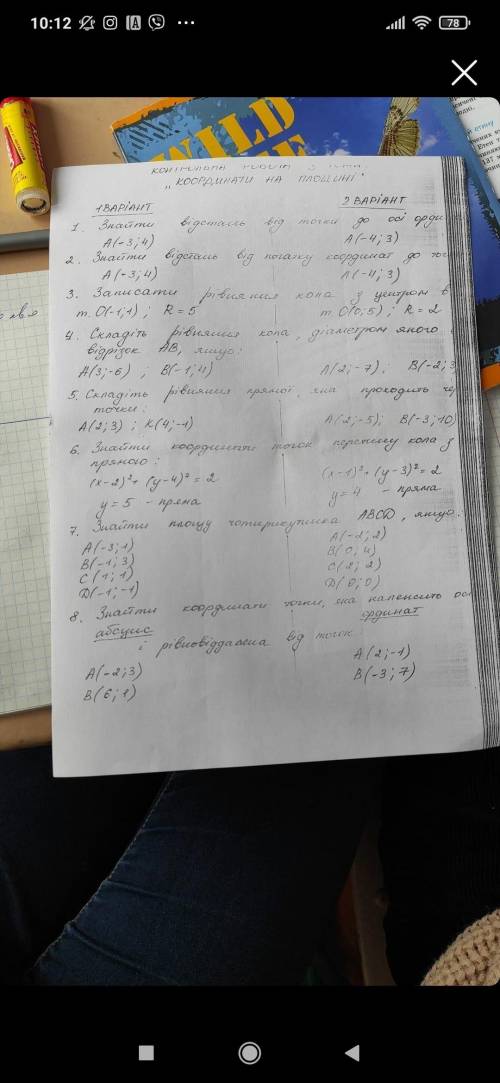 10:12
78
WILD
КОНТРОЛЬНА РОБОТА З ТЕМИ
„КООРДИНАТИ НА ПЛОЩИНІ"
1 ВАРІАНТ 2 ВАРІАНТ
1. Знайти відстань від точки до осі орди
A(-3; 4) A(-4; 3)
2. Знайти відстань від початку координат до точ
A(-3; 4) A(-4; 3)
3. Записати рівняння кола з центром в
т. O(-1; 1) ; R = 5 т. O(0; 5) ; R = 2
4. Складіть рівняння кола, діаметром якого є
відрізок AB, якщо:
A(3; -6) ; B(-1; 4) A(2; -7) ; B(-2; 3
5. Складіть рівняння прямої, яка проходить чер
точки:
A(2; 3) ; K(4; -1) A(2; -5); B(-3; 10)
6. Знайти координати точок перетину кола з
прямою:
(x-2)² + (y-4)² = 2 (x-1)² + (y-3)² = 2
y = 5 - пряма y = 4 - пряма
7. Знайти площу чотирикутника ABCD, якщо:
A(-3; 1) A(-2; 2)
B(-1; 3) B(0; 4)
C(1; 1) C(2; 2)
D(-1; -1) D(0; 0)
8. Знайти координати точки, яка належить осі
абсцис ординат
і рівновіддалена від точок
A(-2; 3) A(2; -1)
B(6; 1) B(-3; 7)